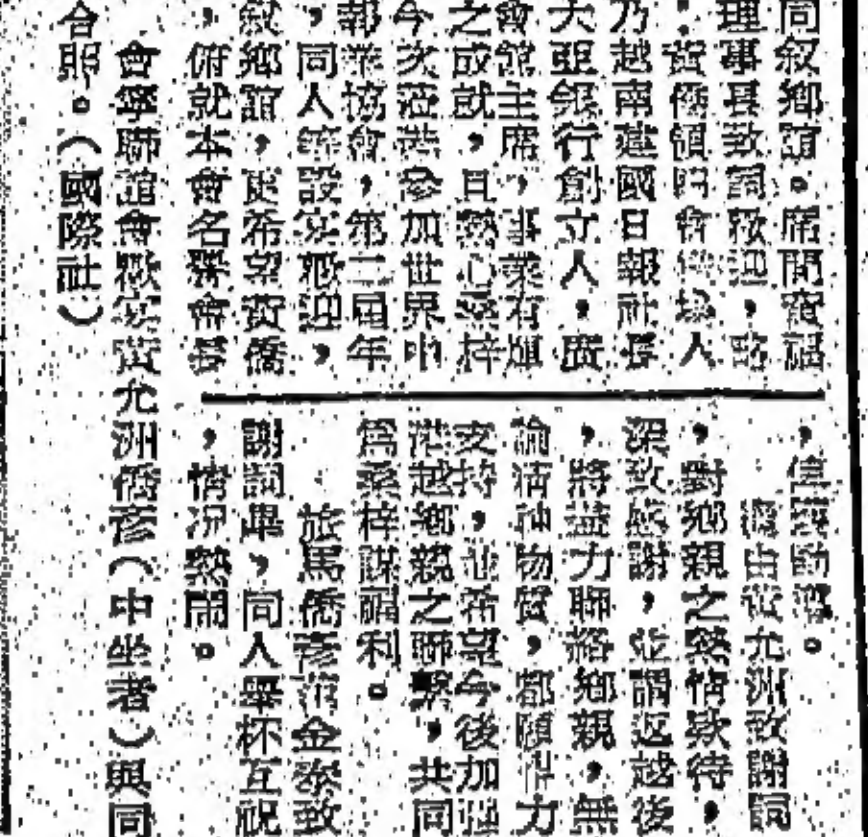 同叙鄉誼。席間賓話
理事長致詞歡迎，略
：黃僑領 會 人
乃越南建國日報社長
大亞銀行創立人，廣
會館主席，事業有輝
之成就，且熱心桑梓
今次蒞港參加世界中
報業協會，第二屆年
，同人 設宴歡迎，
叙鄉誼，更希望黃僑
，俯就本會名譽會長
，偉 。
由黃允洲致謝詞
，對鄉親之熱情歘待，
深致感謝，並謂返越後
，將益力聯絡鄉親，無
論精神物質，都願作力
支持，並希望今後加强
港越鄉親之聯繫，共同
爲桑梓謀福利。
旅馬僑彥 金泰致
謝詞畢，同人舉杯互祝
，情况熱鬧。
會寧聯誼會歘宴黃允洲僑彥（中坐者）與同
合照。（國際社）